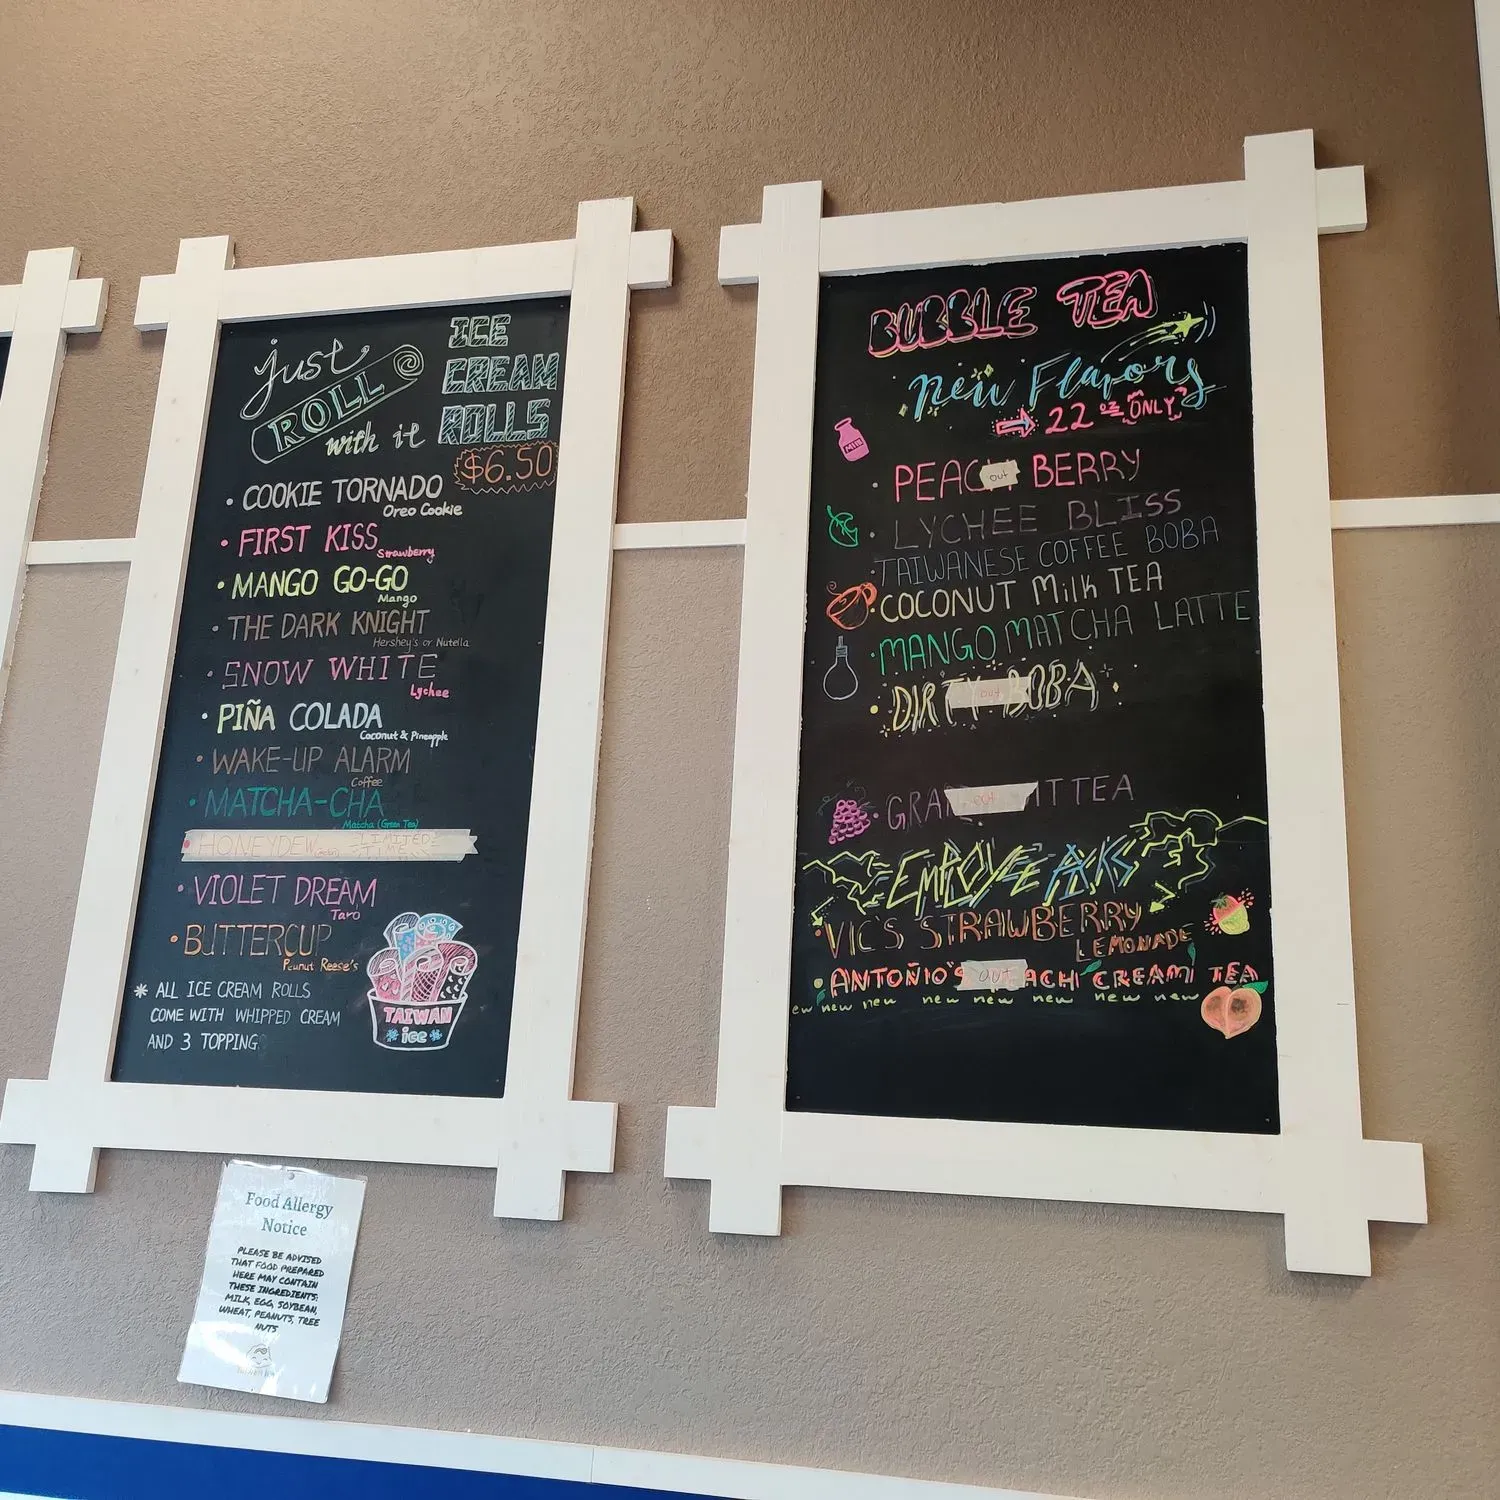 just
ROLL
with it
ICE
CREAM
ROLLS
$6.50
• COOKIE TORNADO
Oreo Cookie
• FIRST KISS
Strawberry
• MANGO GO-GO
Mango
• THE DARK KNIGHT
Hershey's or Nutella
• SNOW WHITE
Lychee
• PIÑA COLADA
Coconut & Pineapple
• WAKE-UP ALARM
Coffee
• MATCHA-CHA
Matcha (Green Tea)
• HONEYDEW -LIMITED-
TIME
• VIOLET DREAM
Taro
• BUTTERCUP
Peanut Reese's
* ALL ICE CREAM ROLLS
COME WITH WHIPPED CREAM
AND 3 TOPPING
TAIWAN
ice
BUBBLE TEA
new Flavors
22 oz ONLY
MILK
• PEAC out BERRY
• LYCHEE BLISS
• TAIWANESE COFFEE BOBA
• COCONUT Milk TEA
• MANGO MATCHA LATTE
• DIRTY out BOBA
• GRA out IT TEA
EMPLOYEE PICKS
• VIC'S STRAWBERRY
LEMONADE
• ANTOÑIO'S out EACH CREAMI TEA
ew new new new new new new new
Food Allergy
Notice
PLEASE BE ADVISED
THAT FOOD PREPARED
HERE MAY CONTAIN
THESE INGREDIENTS:
MILK, EGG, SOYBEAN,
WHEAT, PEANUTS, TREE
NUTS